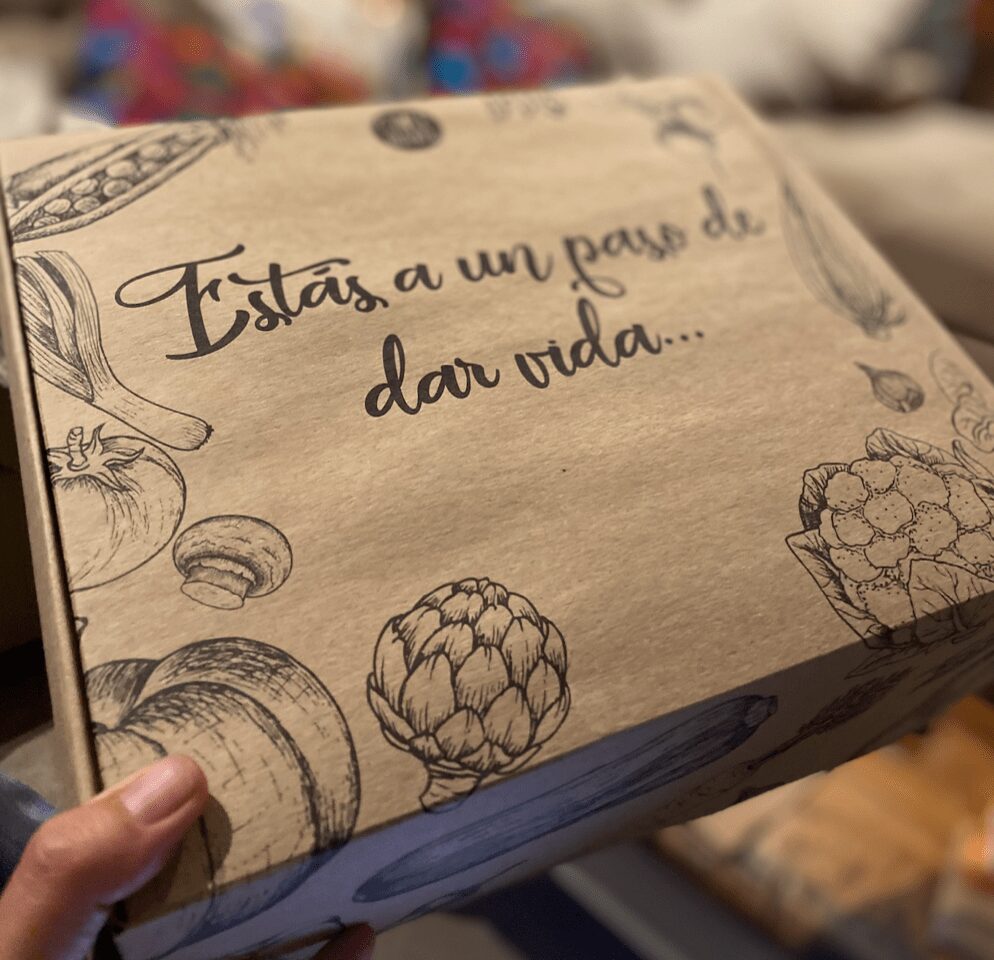 Estás a un paso de
dar vida...